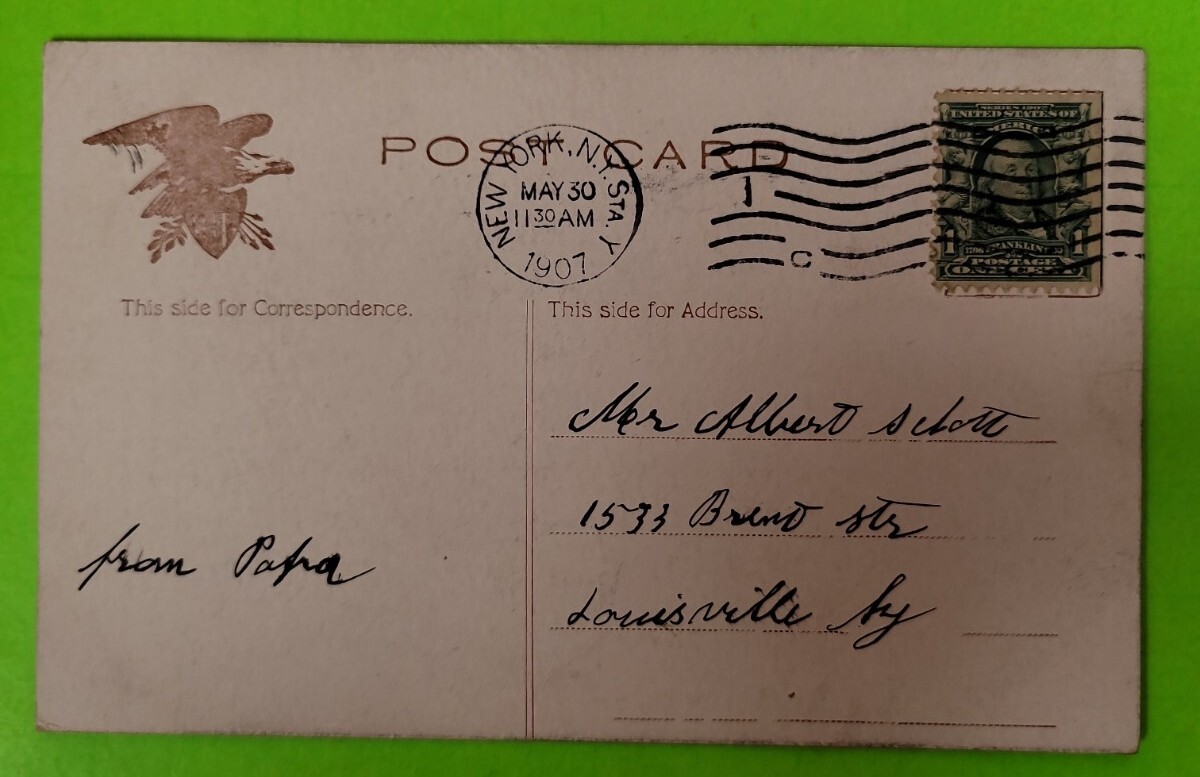 POST CARD
NEW YORK, N.Y. STA. Y
MAY 30
11 30 AM
1907
1
C
SERIES 1902
UNITED STATES OF
AMERICA
1 FRANKLIN 1
POSTAGE
ONE CENT
This side for Correspondence.
This side for Address.
Mr Albert Schott
1533 Brent str
Louisville Ky
from Papa